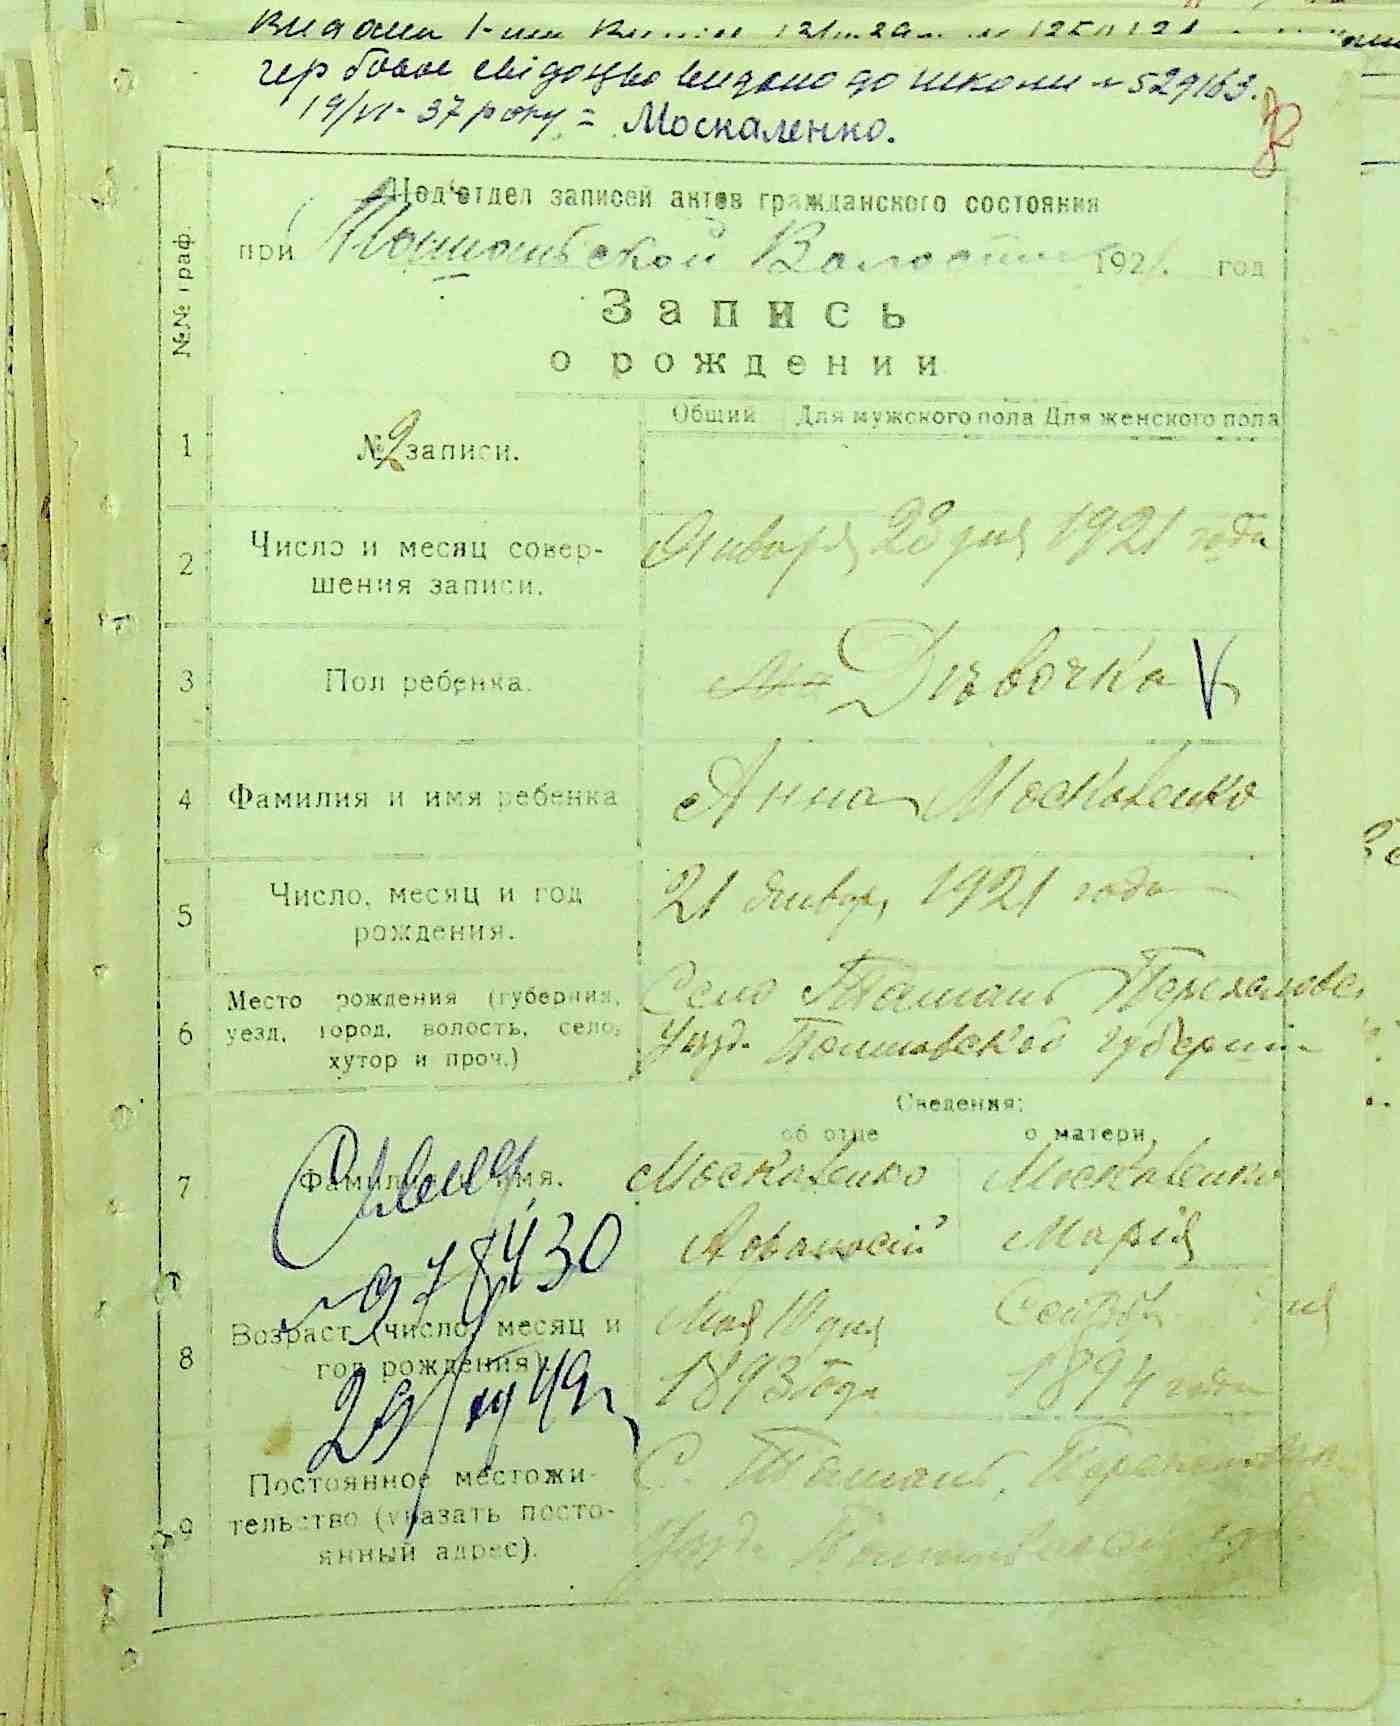 гербове свідоцтво видано до школи № 529163.
19/VI - 37 року = Москаленко.
Под'отдел записей актов гражданского состояния
при Ташанской Волости 1921. год
Запись
о рождении
№№ граф.
Общий Для мужского пола Для женского пола
1 № 2 записи.
2 Число и месяц совершения записи. Января 23 дня 1921 года
3 Пол ребенка. Дѣвочка V
4 Фамилия и имя ребенка Анна Москаленко
5 Число, месяц и год рождения. 21 Января 1921 года
6 Место рождения (губерния, уезд, город, волость, село, хутор и проч.) Село Ташань
Уезд. Полтавской губернии
Сведения:
об отце о матери
7 Фамилия и имя. Москаленко Москаленко
Афанасій Марія
8 Возраст (число, месяц и год рождения). Мая 10 дня
1893 года 1894 года
29/IV 49 г.
9 Постоянное местожительство (указать постоянный адрес). С. Ташань,
Уезд. Полтавской